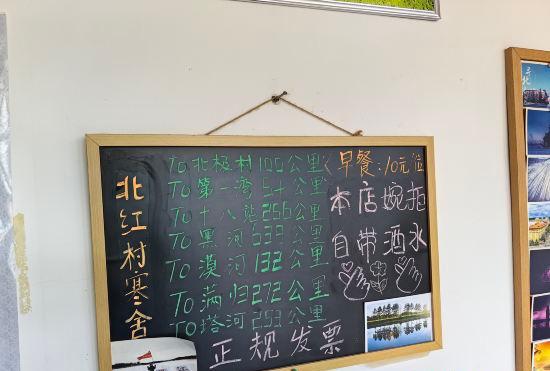 北红村寒舍
To北极村100公里
To第一湾54公里
To十八站256公里
To黑河539公里
To漠河132公里
To满归272公里
To塔河253公里
正规发票
早餐:10元/位
本店婉拒
自带酒水